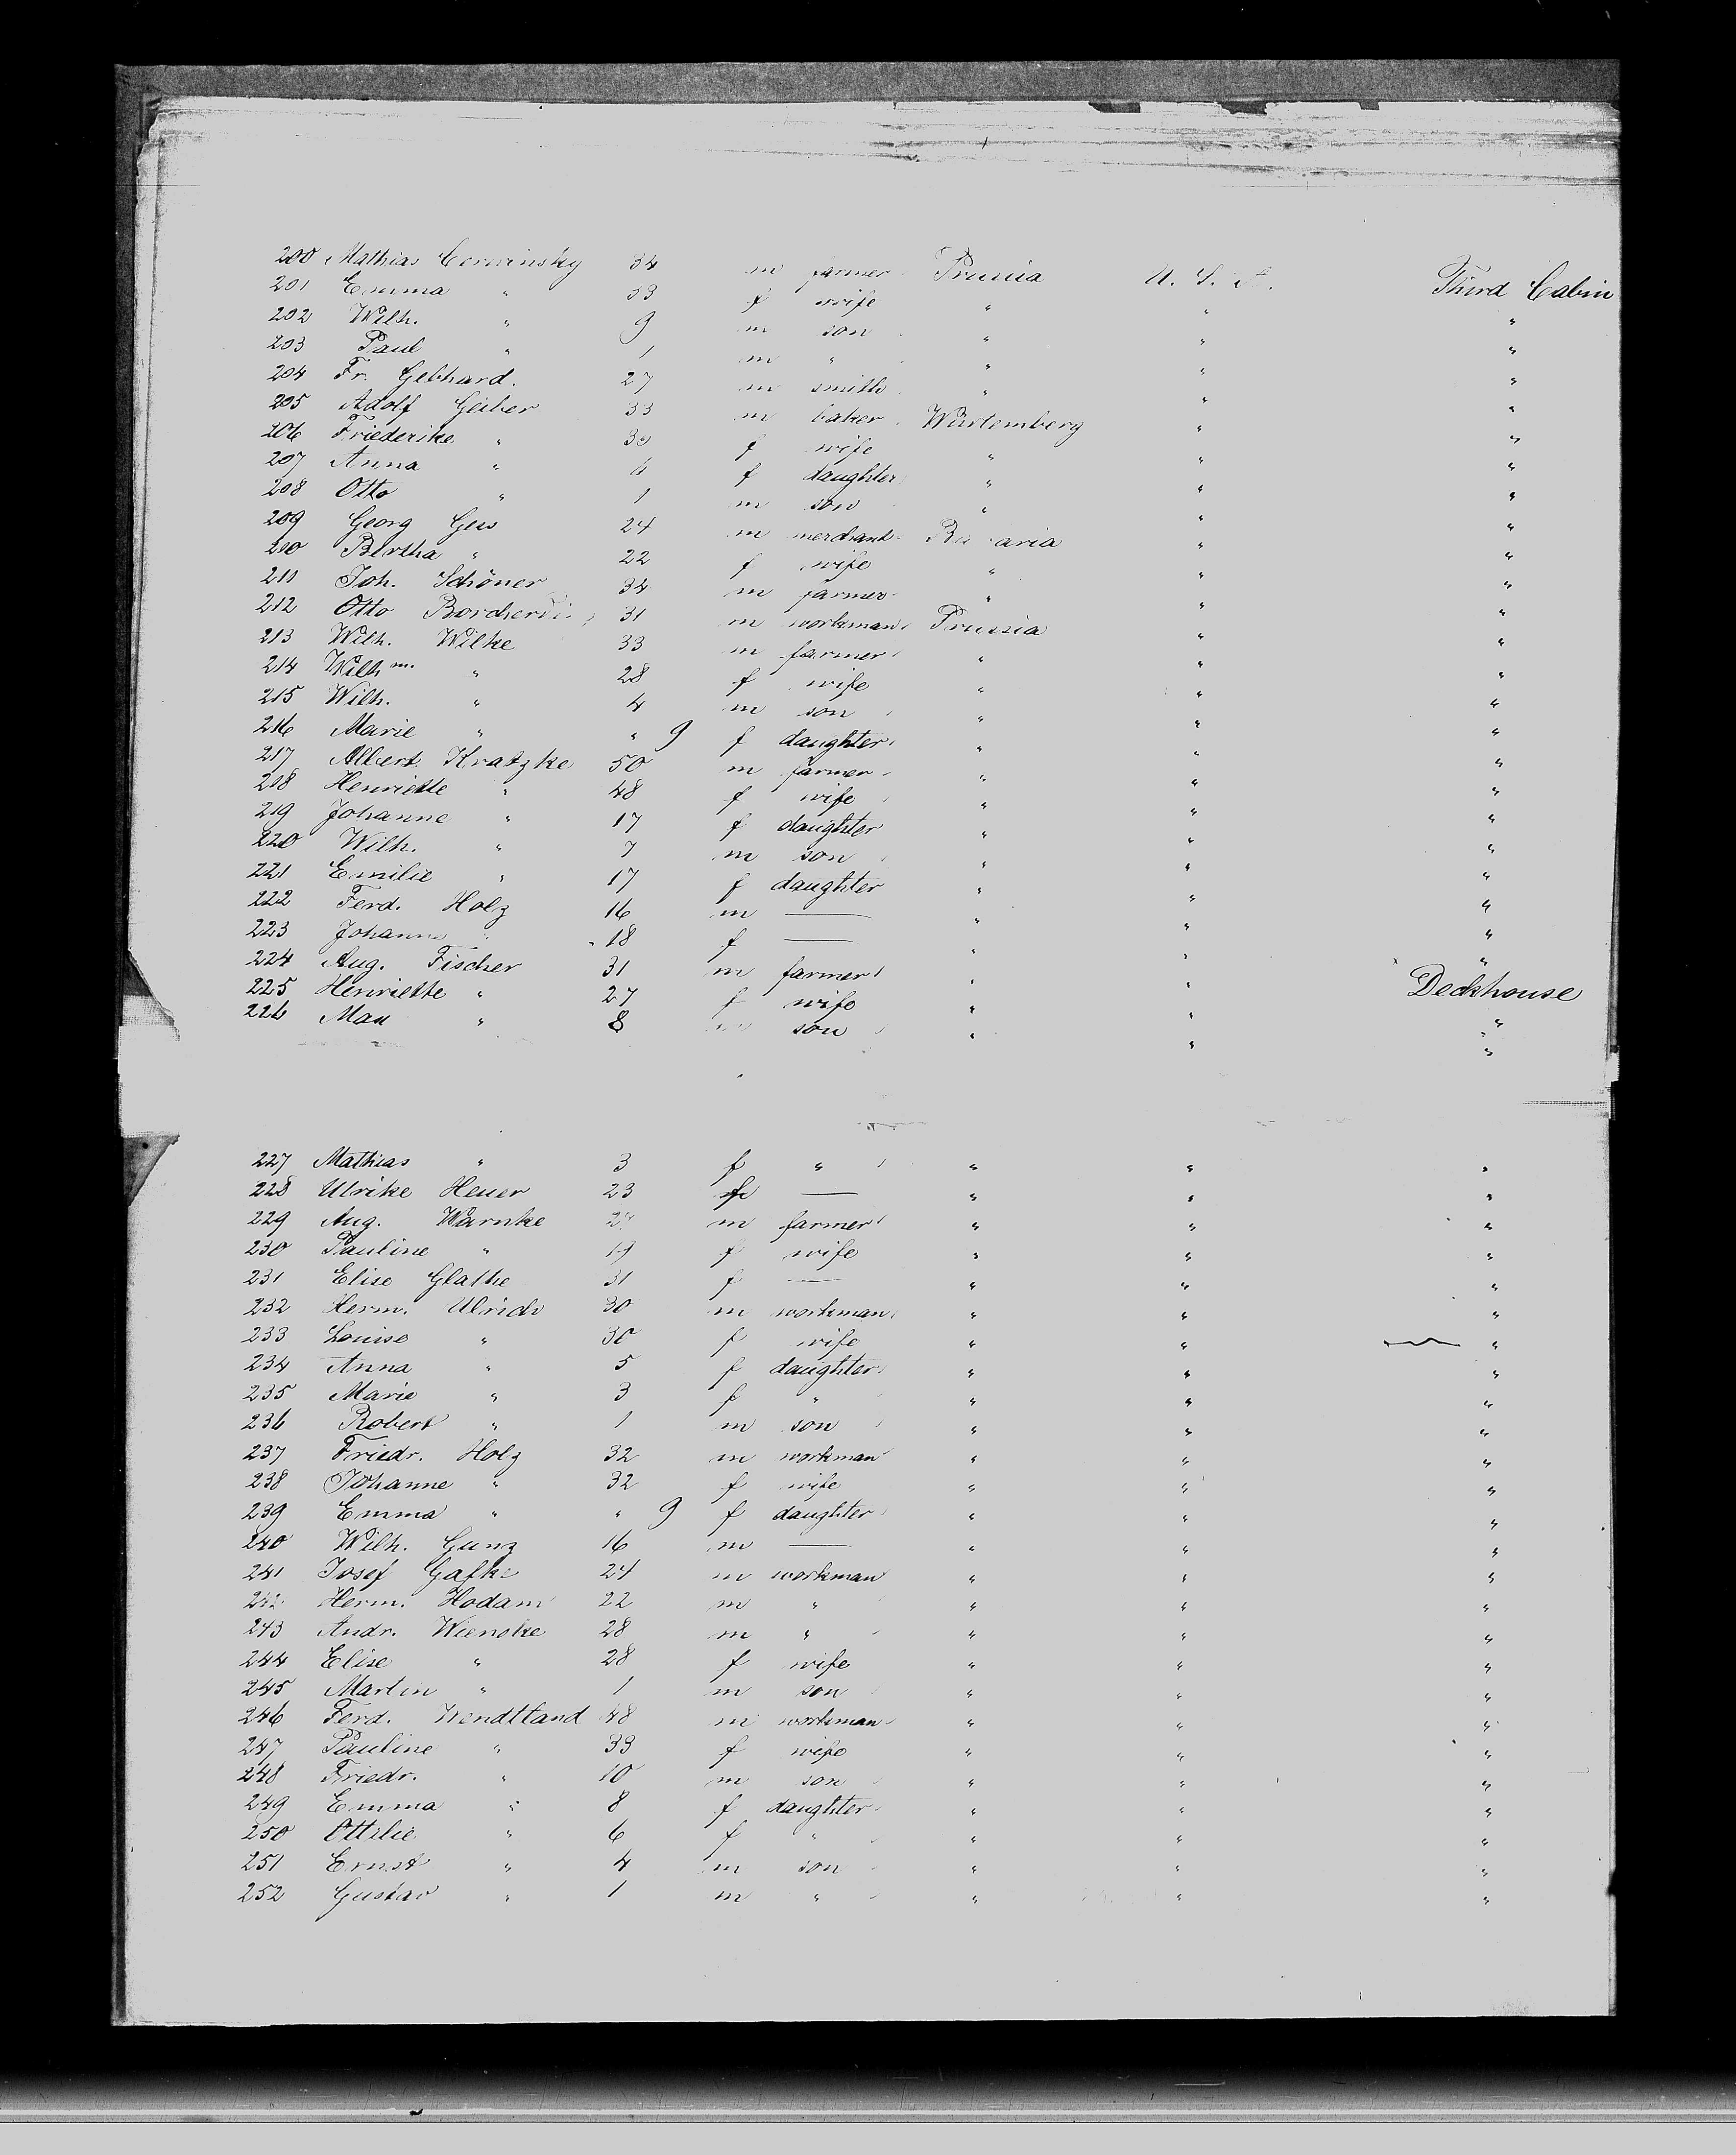 200 Mathias Cerwinsky 34 m farmer Prussia U. S. A. Third Cabin
201 Emma " 33 f wife " " "
202 Wilh. " 9 m son " " "
203 Paul " 1 m " " " "
204 Fr. Gebhard. 27 m smith " " "
205 Adolf Geiber 33 m baker Würtemberg " "
206 Friederike " 30 f wife " " "
207 Anna " f daughter " " "
208 Otto " 1 m son " " "
209 Georg Geis 24 m merchant Bavaria " "
210 Bertha " 22 f wife " " "
211 Joh. Schöner 34 m farmer " " "
212 Otto 31 m workman Prussia " "
213 Wilh. Wilke 33 m farmer " " "
214 Wilhm. " 28 f wife " " "
215 Wilh. " 4 m son " " "
216 Marie " " 9 f daughter " " "
217 Albert Kratzke 50 m farmer " " "
218 Henriette " 48 f wife " " "
219 Johanne " 17 f daughter " " "
220 Wilh. " 7 m son " " "
221 Emilie " 17 f daughter " " "
222 Ferd. Holz 16 m — " " "
223 Johanne " 18 f — " " "
224 Aug. Fischer 31 m farmer " " Deckhouse
225 Henriette " 27 f wife " " "
226 Max " 8 m son " " "
227 Mathias " 3 f " " " "
228 Ulrike Heuer 23 f — " " "
229 Aug. Warnke m farmer " " "
230 Pauline " 19 f wife " " "
231 Elise Glathe 31 f — " " "
232 Herm. Ulrich 30 m workman " " "
233 Louise " 30 f wife " " "
234 Anna " 5 f daughter " " "
235 Marie " 3 f " " " "
236 Robert " 1 m son " " "
237 Friedr. Holz 32 m workman " " "
238 Johanne " 32 f wife " " "
239 Emma " " 9 f daughter " " "
240 Wilh. Gunz 16 m — " " "
241 Josef Gafke 24 m workman " " "
242 Herm. Hodam 22 m " " " "
243 Andr. Wienske 28 m " " " "
244 Elise " 28 f wife " " "
245 Martin " 1 m son " " "
246 Ferd. Wendtland 48 m workman " " "
247 Pauline " 33 f wife " " "
248 Friedr. " 10 m son " " "
249 Emma " 8 f daughter " " "
250 Ottilie " 6 f " " " "
251 Ernst " 4 m son " " "
252 Gustav " 1 m " " " "